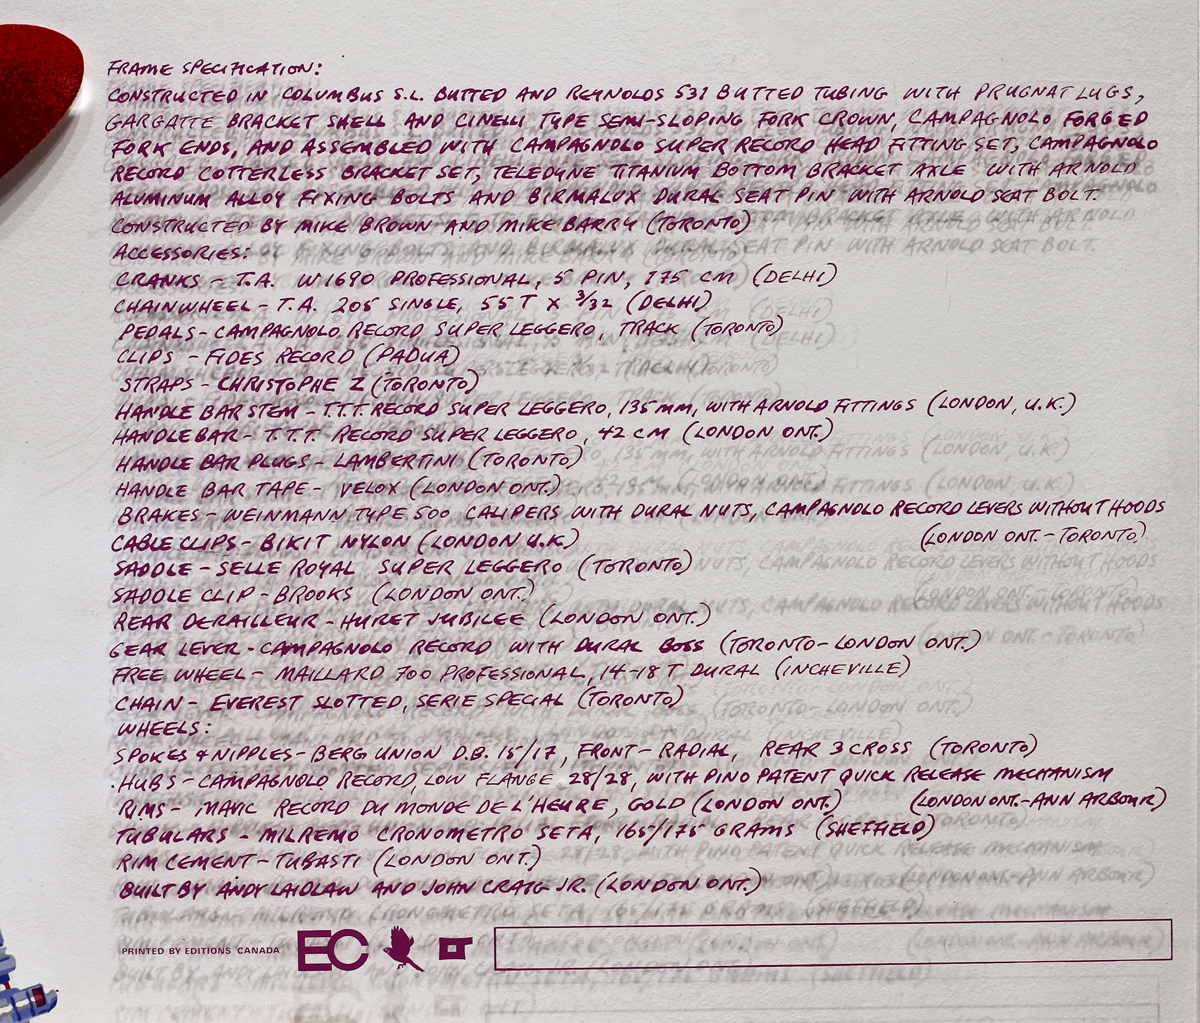 FRAME SPECIFICATION:
CONSTRUCTED IN COLUMBUS S.L. BUTTED AND REYNOLDS 531 BUTTED TUBING WITH PRUGNAT LUGS,
GARGATTE BRACKET SHELL AND CINELLI TYPE SEMI-SLOPING FORK CROWN, CAMPAGNOLO FORGED
FORK ENDS, AND ASSEMBLED WITH CAMPAGNOLO SUPER RECORD HEAD FITTING SET, CAMPAGNOLO
RECORD COTTERLESS BRACKET SET, TELEDYNE TITANIUM BOTTOM BRACKET AXLE WITH ARNOLD
ALUMINUM ALLOY FIXING BOLTS AND BIRMALUX DURAL SEAT PIN WITH ARNOLD SEAT BOLT.
CONSTRUCTED BY MIKE BROWN AND MIKE BARRY (TORONTO)
ACCESSORIES:
CRANKS - T.A. W1690 PROFESSIONAL, 5 PIN, 175 CM (DELHI)
CHAINWHEEL - T.A. 205 SINGLE, 55 T X 3/32 (DELHI)
PEDALS - CAMPAGNOLO RECORD SUPER LEGGERO, TRACK (TORONTO)
CLIPS - FIDES RECORD (PADUA)
STRAPS - CHRISTOPHE Z (TORONTO)
HANDLE BAR STEM - T.T.T. RECORD SUPER LEGGERO, 135 MM, WITH ARNOLD FITTINGS (LONDON, U.K.)
HANDLE BAR - T.T.T. RECORD SUPER LEGGERO, 42 CM (LONDON ONT.)
HANDLE BAR PLUGS - LAMBERTINI (TORONTO)
HANDLE BAR TAPE - VELOX (LONDON ONT.)
BRAKES - WEINMANN TYPE 500 CALIPERS WITH DURAL NUTS, CAMPAGNOLO RECORD LEVERS WITHOUT HOODS
(LONDON ONT. - TORONTO)
CABLE CLIPS - BIKIT NYLON (LONDON U.K.)
SADDLE - SELLE ROYAL SUPER LEGGERO (TORONTO)
SADDLE CLIP - BROOKS (LONDON ONT.)
REAR DERAILLEUR - HURET JUBILEE (LONDON ONT.)
GEAR LEVER - CAMPAGNOLO RECORD WITH DURAL BOSS (TORONTO - LONDON ONT.)
FREE WHEEL - MAILLARD 700 PROFESSIONAL, 14-18 T DURAL (INCHEVILLE)
CHAIN - EVEREST SLOTTED, SERIE SPECIAL (TORONTO)
WHEELS:
SPOKES & NIPPLES - BERG UNION D.B. 15/17, FRONT - RADIAL, REAR 3 CROSS (TORONTO)
HUBS - CAMPAGNOLO RECORD, LOW FLANGE 28/28, WITH PINO PATENT QUICK RELEASE MECHANISM
(LONDON ONT. - ANN ARBOUR)
RIMS - MAVIC RECORD DU MONDE DE L'HEURE, GOLD (LONDON ONT.)
TUBULARS - MILREMO CRONOMETRO SETA, 165/175 GRAMS (SHEFFIELD)
RIM CEMENT - TUBASTI (LONDON ONT.)
BUILT BY ANDY LAIDLAW AND JOHN CRAIG JR. (LONDON ONT.)
PRINTED BY EDITIONS CANADA EC